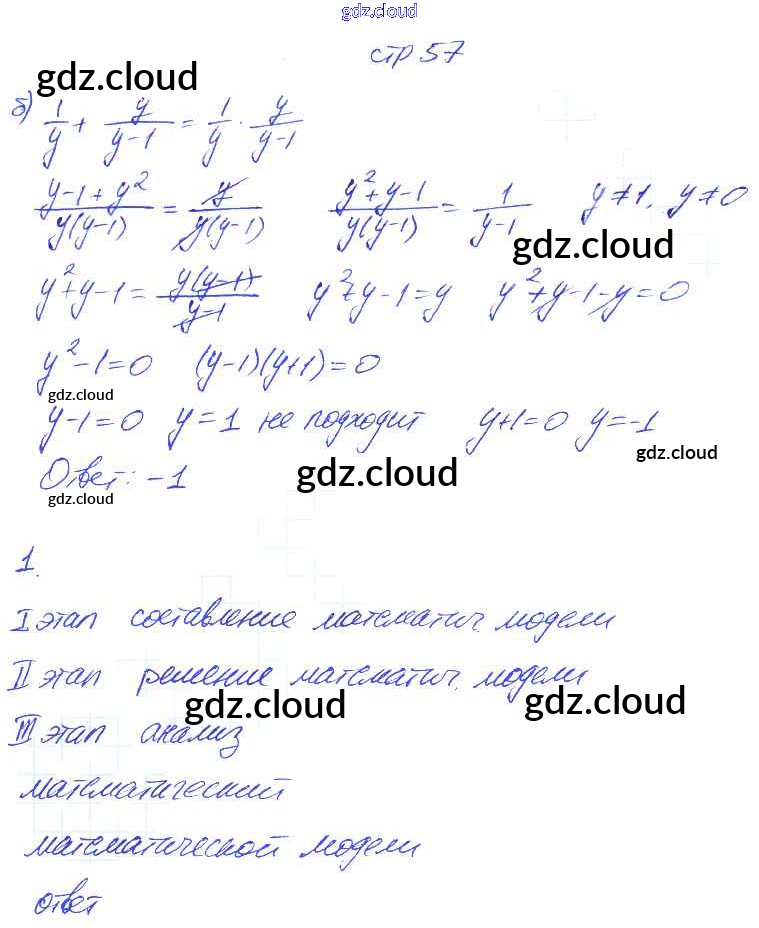 gdz.cloud
стр 57
gdz.cloud
б) 1/y + y/(y-1) = 1/y · y/(y-1)
(y-1+y²)/(y(y-1)) = y/(y(y-1)) (y²+y-1)/(y(y-1)) = 1/(y-1) y≠1, y≠0
gdz.cloud
y²+y-1 = y(y-1)/(y-1) y²+y-1=y y²+y-1-y=0
y²-1=0 (y-1)(y+1)=0
gdz.cloud
y-1=0 y=1 не подходит y+1=0 y=-1
gdz.cloud
Ответ: -1
gdz.cloud
gdz.cloud
1.
I этап составление математич. модели
II этап решение математич. модели
gdz.cloud
gdz.cloud
III этап анализ
математический
математической модели
ответ